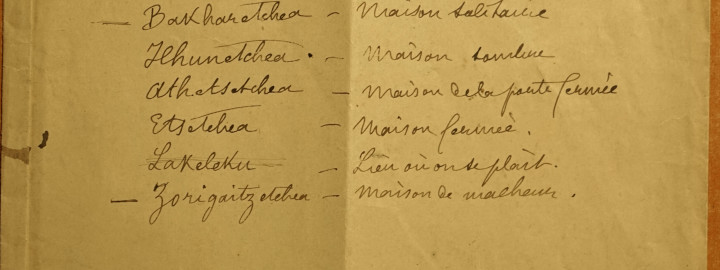 — Bakharetchea - Maison solitaire
Ilhunetchea. - Maison sombre
Athetsetchea - Maison de la porte fermée
Etsetchea - Maison fermée.
Lakeleku - Lieu où on se plaît.
— Zorigaitzetchea - Maison de malheur.